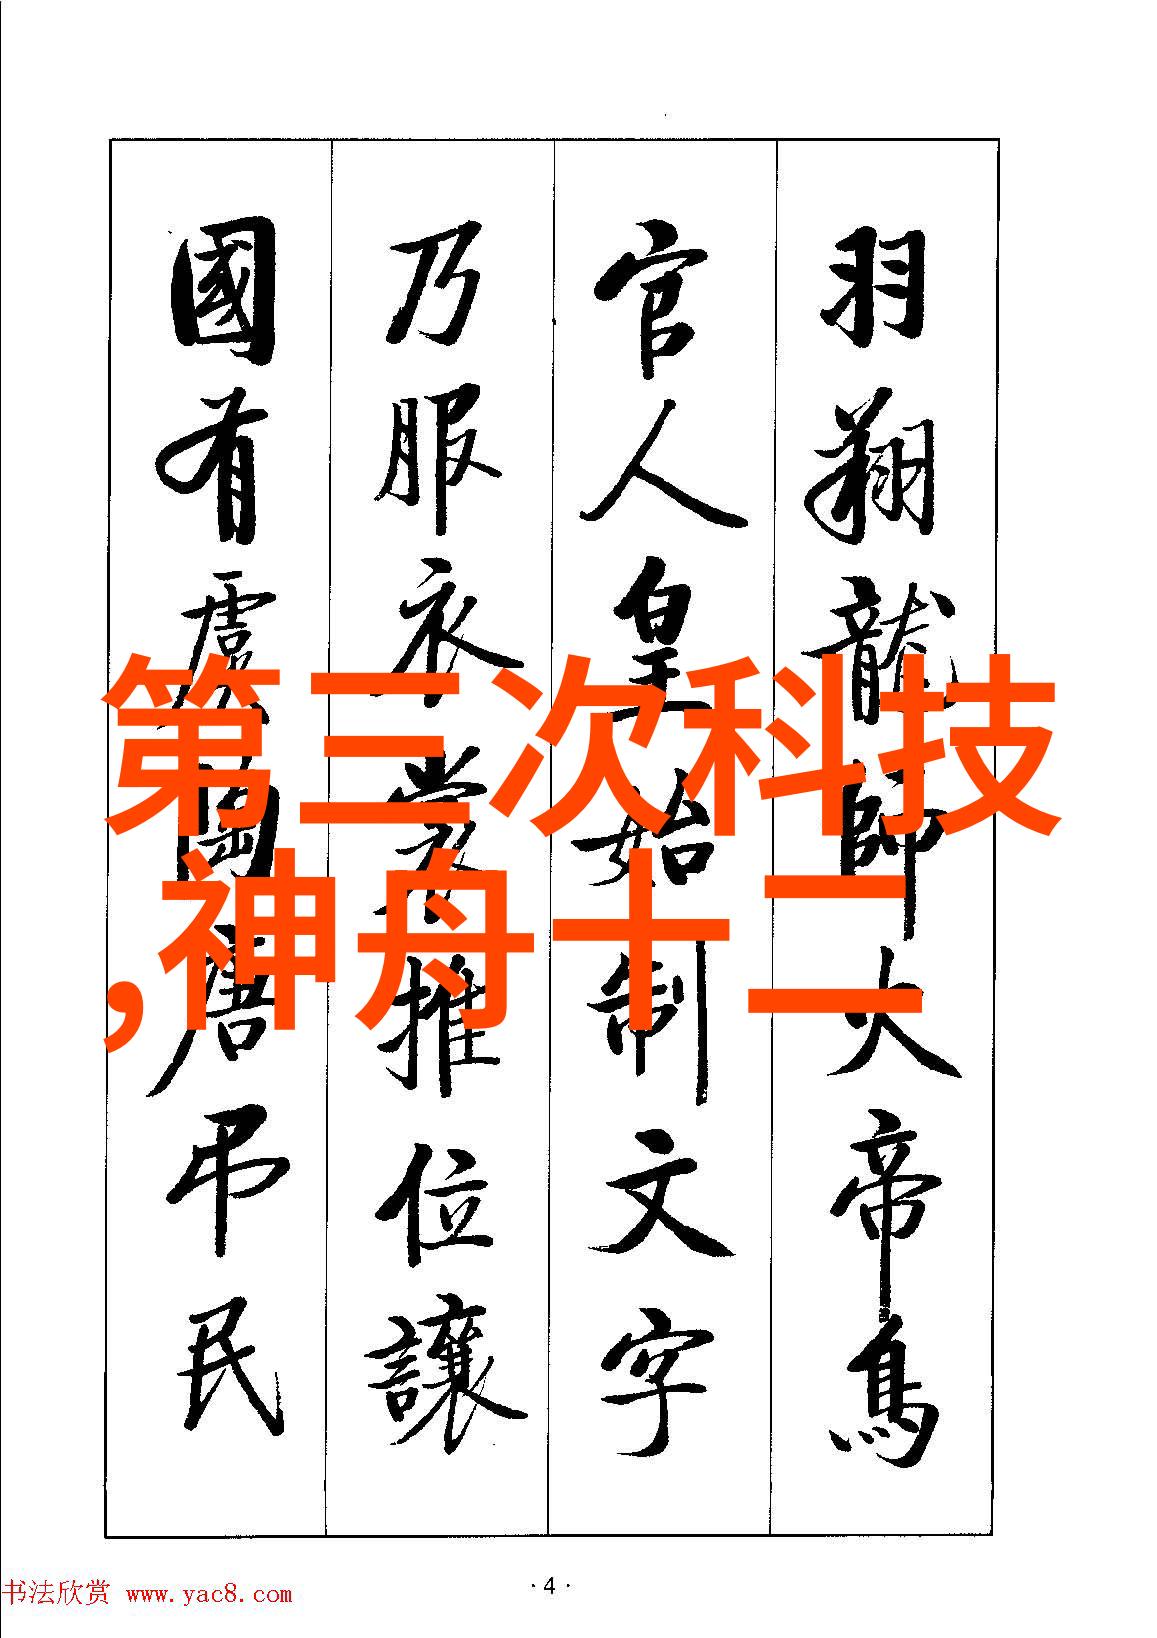 羽翔龍師火帝鳥
官人皇始制文字
乃服衣裳推位讓
國有虞陶唐弔民
第三次科技
,神舟十二
·4·
书法欣赏 www.yac8.com